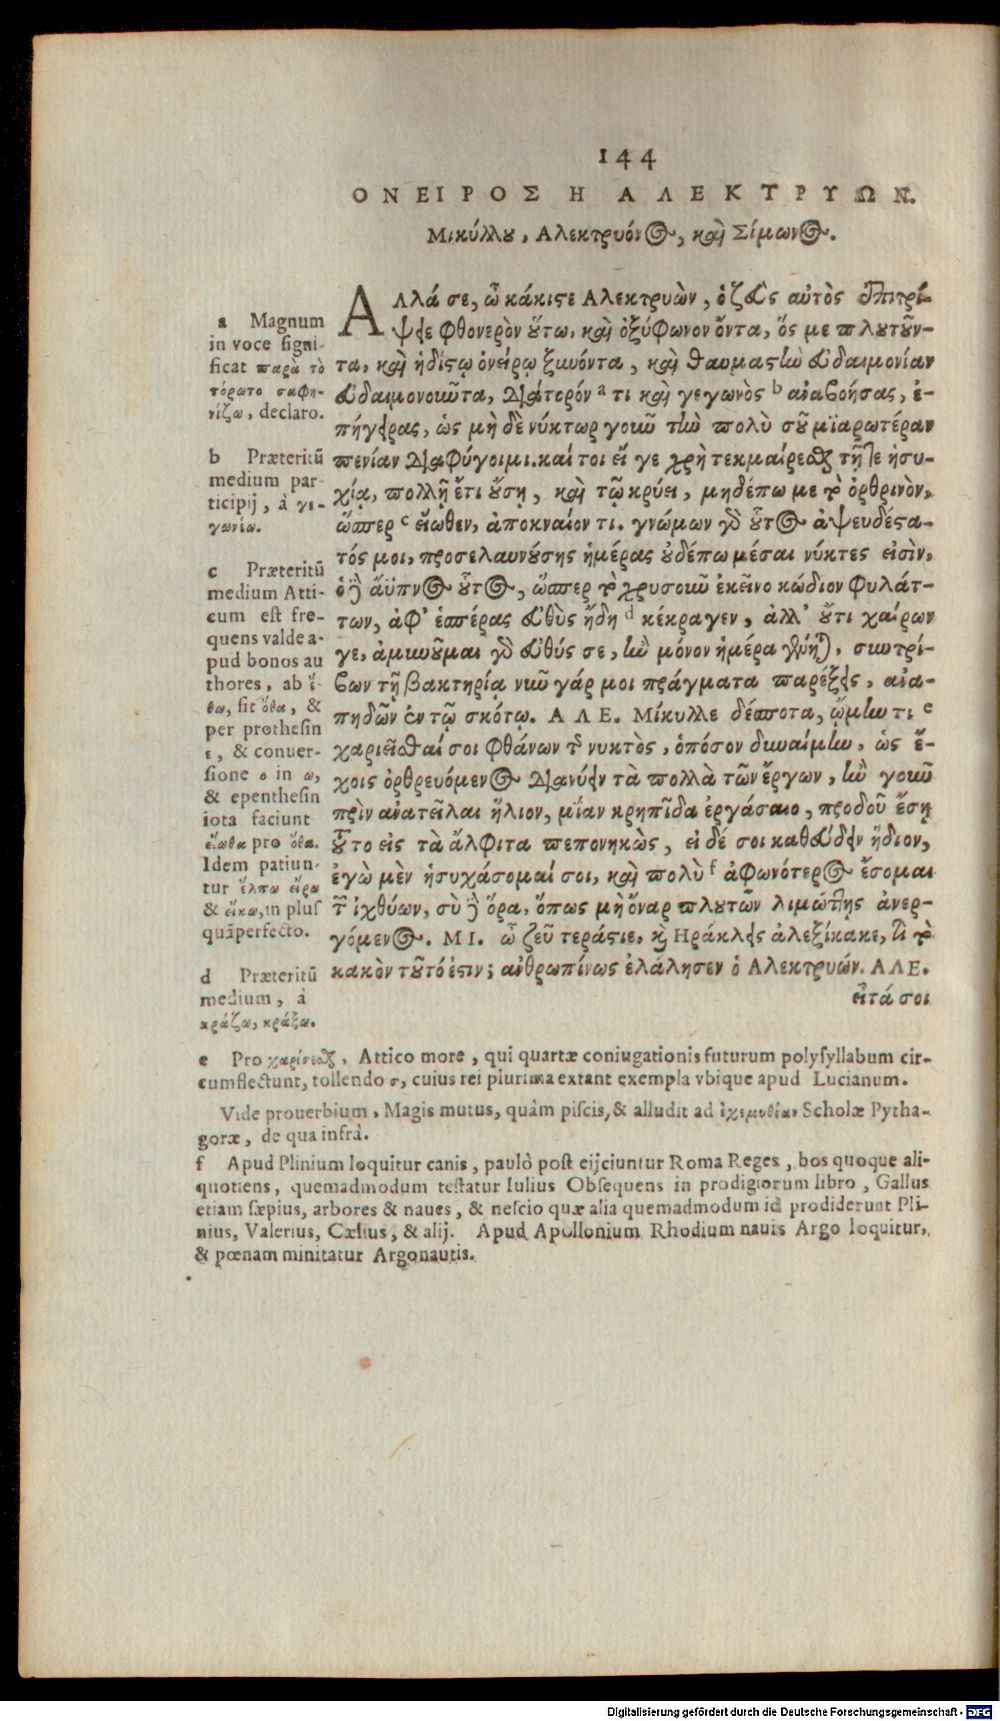 144
ΟΝΕΙΡΟΣ Η ΑΛΕΚΤΡΥΩΝ.
Μικύλλου, Αλεκτρυόνος, καὶ Σίμωνος.
ΑΛΛά σε, ὦ κάκιστε Αλεκτρυὼν, ὁ ζεὺς αὐτὸς ἐπιτρί-
ψειε φθονερὸν οὕτω, καὶ ὀξύφωνον ὄντα, ὅς με πλουτοῦν-
τα, καὶ ἡδίστῳ ὀνείρῳ ξυνόντα, καὶ θαυμαστὼ εὐδαιμονίαν
εὐδαιμονοῦντα, διάτορόν a τι καὶ γεγωνὸς b ἀναβοήσας, ἐ-
πήγειρας, ὡς μὴ δὲ νύκτωρ γοῦν τὴν πολὺ σοῦ μϊαρωτέραν
πενίαν διαφύγοιμι. καίτοι εἴ γε χρὴ τεκμαίρεσθαι τῇ τε ἡσυ-
χίᾳ, πολλῇ ἔτι οὔσῃ, καὶ τῷ κρύει, μηδέπω με τὸ ὀρθρινὸν,
ὥσπερ c εἴωθεν, ἀποκναίον τι. γνώμων γὰρ οὗτος ἀψευδέστα-
τός μοι, προσελαυνούσης ἡμέρας οὐδέπω μέσαι νύκτες εἰσὶν,
ὁ δὲ ἄϋπνος οὗτος, ὥσπερ τὸ χρυσοῦν ἐκεῖνο κώδιον φυλάτ-
των, ἀφ' ἑσπέρας εὐθὺς ἤδη d κέκραγεν, ἀλλ' οὔτι χαίρων
γε, ἀμυνοῦμαι γὰρ εὐθύς σε, ἢν μόνον ἡμέρα γένηται, συντρί-
βων τῇ βακτηρίᾳ νῦν γάρ μοι πράγματα παρέξεις, ἀνα-
πηδῶν ἐν τῷ σκότῳ. ΑΛΕ. Μίκυλλε δέσποτα, ᾤμην τι e
χαριεῖσθαί σοι φθάνων τῆς νυκτὸς, ὁπόσον δυναίμην, ὡς ἔ-
χοις ὀρθρευόμενος διανύειν τὰ πολλὰ τῶν ἔργων, ἢν γοῦν
πρὶν ἀνατεῖλαι ἥλιον, μίαν κρηπῖδα ἐργάσαιο, προδοῦ ἔσῃ
τοῦτο εἰς τὰ ἄλφιτα πεπονηκὼς, εἰ δέ σοι καθεύδειν ἥδιον,
ἐγὼ μὲν ἡσυχάσομαί σοι, καὶ πολὺ f ἀφωνότερος ἔσομαι
τῶν ἰχθύων, σὺ δὲ ὅρα, ὅπως μὴ ὄναρ πλουτῶν λιμώττῃς ἀνερ-
γόμενος. ΜΙ. ὦ ζεῦ τεράστιε, καὶ Ηράκλεις ἀλεξίκακε, τί τὸ
κακὸν τοῦτό ἐστιν; ἀνθρωπίνως ἐλάλησεν ὁ Αλεκτρυών. ΑΛΕ.
εἶτά σοι
a Magnum
in voce signi-
ficat παρὰ τὸ
τόρωτο σαφη-
νίζω, declaro.
b Præteritū
medium par-
ticipij, à γε-
γωνέω.
c Præteritū
medium Atti-
cum est fre-
quens valde a-
pud bonos au
thores, ab ἔ-
θω, fit ὄθα, &
per prothesin
ε, & conuer-
sione ο in ω,
& epenthesin
iota faciunt
εἴωθα pro ὄθα.
Idem patiun-
tur ἔλπω εἴρω
& εἴκω, in plus
quāperfecto.
d Præteritū
medium, à
κράζω, κράξω.
e Pro χαρίσεσθαι, Attico more, qui quartæ coniugationis futurum polysyllabum cir-
cumflectunt, tollendo σ, cuius rei plurima extant exempla vbique apud Lucianum.
Vide prouerbium, Magis mutus, quàm piscis, & alludit ad ἐχεμυθίαν Scholæ Pytha-
goræ, de qua infrà.
f Apud Plinium loquitur canis, paulò post eijciuntur Roma Reges, bos quoque ali-
quotiens, quemadmodum testatur Iulius Obsequens in prodigiorum libro, Gallus
etiam sæpius, arbores & naues, & nescio quæ alia quemadmodum id prodiderunt Pli-
nius, Valerius, Cælius, & alij. Apud Apollonium Rhodium nauis Argo loquitur,
& pœnam minitatur Argonautis.
Digitalisierung gefördert durch die Deutsche Forschungsgemeinschaft - DFG